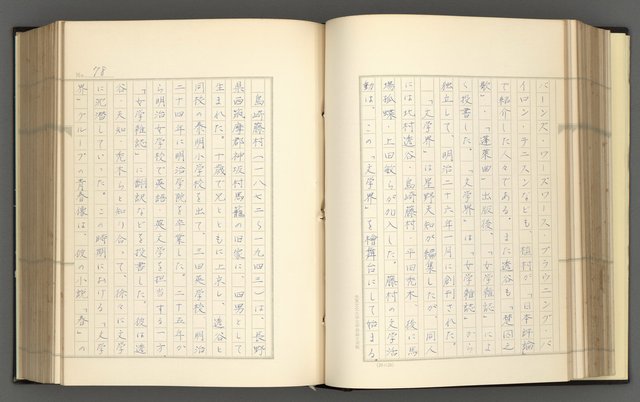 バーンズ・ワーズワース・ブラウニング・バ
イロン・テニスンなども、植村が「日本評論」
で紹介した人々である。また透谷も「楚囚之
詩」・「蓬莱曲」出版後、「女学雑誌」によ
く投書した。「文学界」は「女学雑誌」から
独立して、明治二十六年一月に創刊された。
「文学界」は星野天知が編集したが、同人
には北村透谷・島崎藤村・平田禿木・後に馬
場孤蝶・上田敏らが加入した。藤村の文学活
動は、この「文学界」を檜舞台にして始まる。
No. 78
島崎藤村(一八七二〜一九四三)は、長野
県西筑摩郡神坂村馬籠の旧家に、四男として
生まれた。十歳で兄とともに上京し、透谷と
同校の泰明小学校を出て、三田英学校・明治
二十四年に明治学院を卒業した。二十五年か
ら明治女学校で英語・英文学を担当する一方、
「女学雑誌」に翻訳などを投書した。彼は透
谷・天知・禿木らと知り合って、徐々に文学
に沈潜していった。この時期における「文学
界」グループの青春像は、彼の小説「春」の